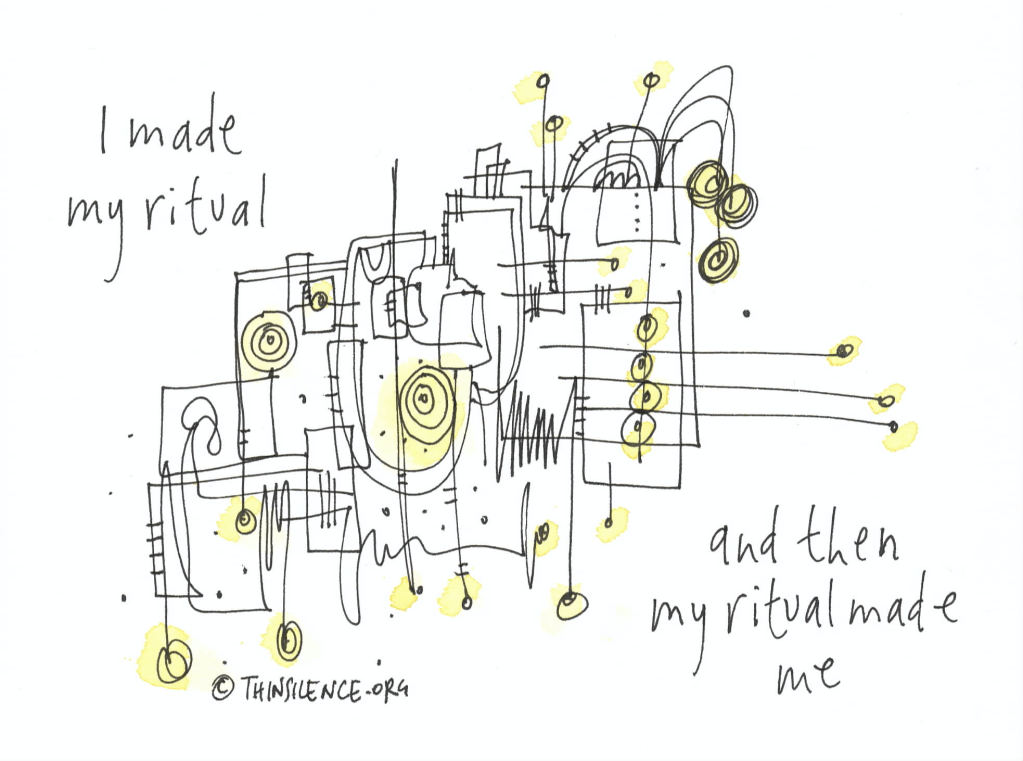 I made
my ritual
and then
my ritual made
me
© THINSILENCE.ORG